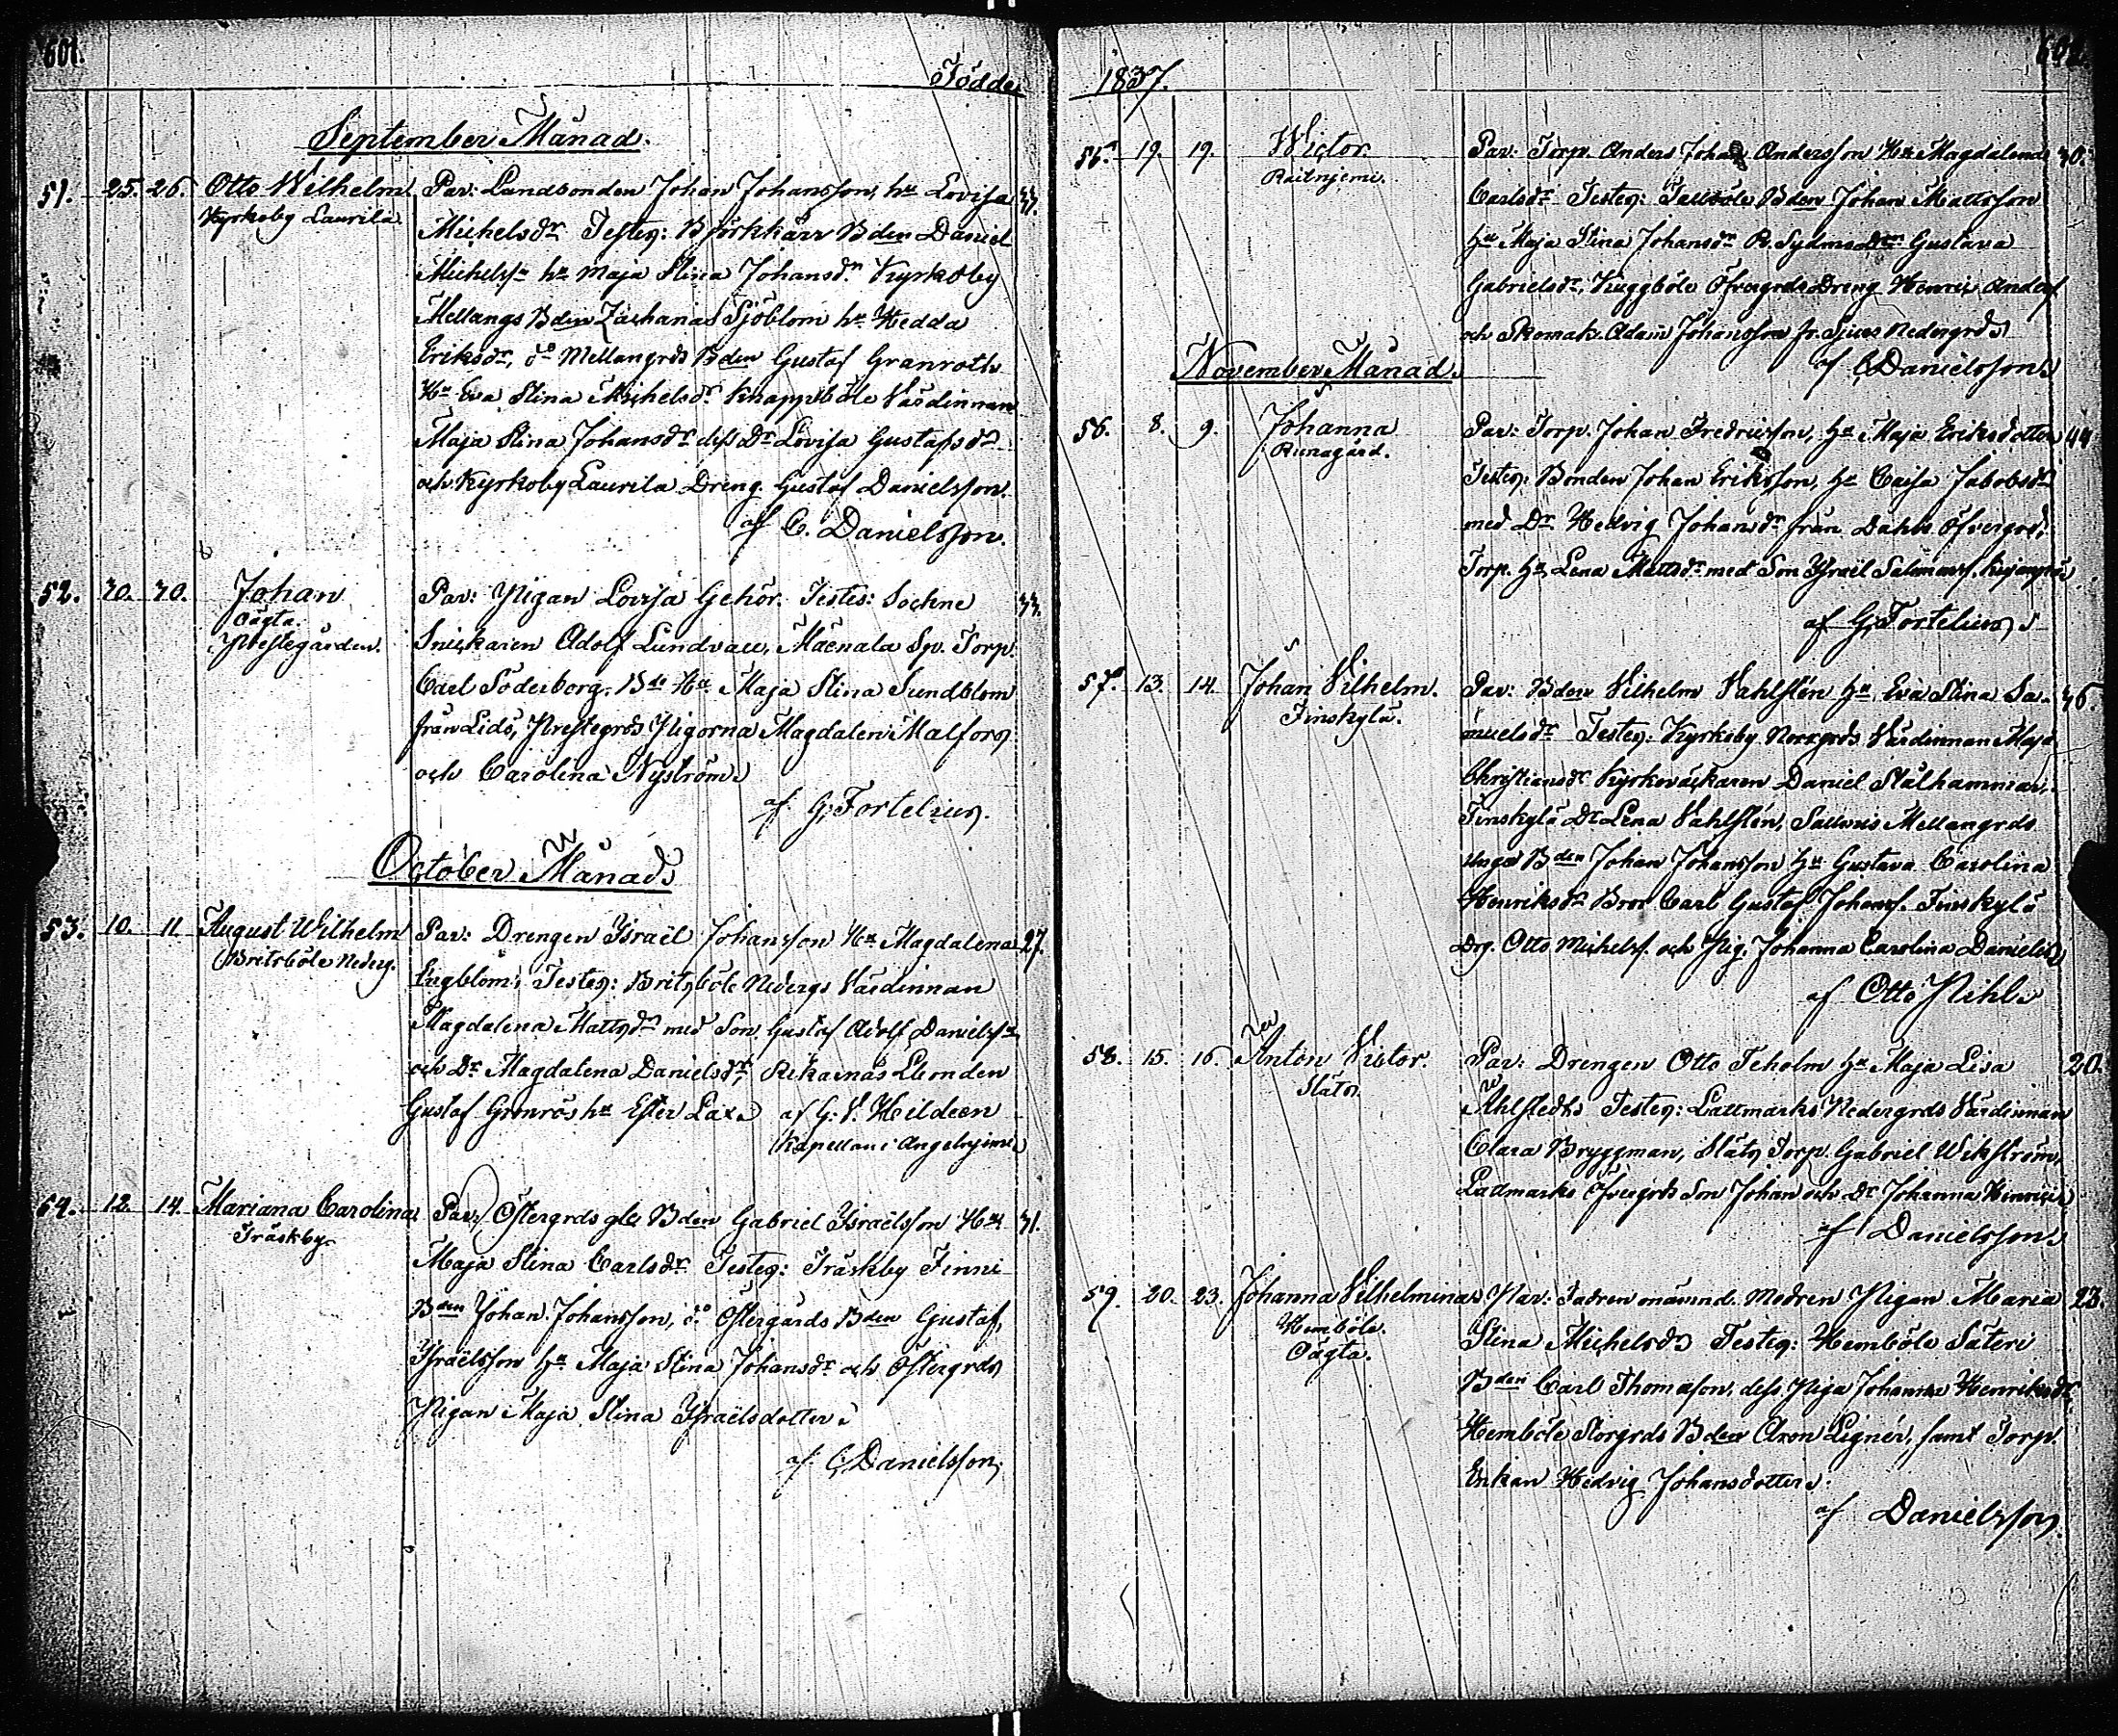 601.
Födde
September Månad.
51. 25. 26. Otto Wilhelm Par: Landbonden Johan Johansson, hu Lovisa 33.
Kyrkoby Laurila. Michelsdr Testes: Björkkärr Bden Daniel
Michelss hu Maja Stina Johansdr Kyrkoby
Mellangs Bden Zacharias Sjöblom hu Hedda
Eriksdr, do Mellangrds Bden Gustaf Granroth
Hu Eva Stina Michelsdr Knappböle Värdinnan
Maja Stina Johansdr dess Dr Lovisa Gustafsdr
och Kyrkoby Laurila Dreng Gustaf Danielsson.
af C. Danielsson.
52. 30. 30. Johan Par: Pigan Lovisa Gehör. Testes: Sockne 33.
oägta.
Prestegården. Snickaren Adolf Lundvall, Torp.
Carl Söderborg, Hu Maja Stina Sundblom
från Lidö, Prestegrds Pigorna Magdalena Malfors
och Carolina Nyström
af G. Fortelius.
October Månad
53. 10. 11. August Wilhelm Par: Drengen Israel Johansson Hu Magdalena 27.
Britsböle Nederg. Engblom, Testes: Britsböle Nedergs Värdinnan
Magdalena Mattsdr med Son Gustaf Adolf Danielss
och Dr Magdalena Danielsdr, Bonden
Gustaf Grönroos hu Ester Lax af G: V. Heildeen
Kapellan i Angelnjemi
54. 12. 14. Mariana Carolina Par: Östergrds gla Bden Gabriel Israelsson Hu 31.
Träskby. Maja Stina Carlsdr Testes: Träskby Finni
Bden Johan Johansson, do Östergårds Bden Gustaf
Israelsson hu Maja Stina Johansdr och Östergrds
Pigan Maja Stina Israelsdotter
af C. Danielsson,
1837.
55. 19. 19. Wictor Par: Torp. Anders Johan Andersson Hu Magdalena 30.
Raitnjemi. Carlsdr Testes: Bden Johan Mattsson
hu Maja Stina Johansdr Gustava
Gabrielsdr, Kuggböle Öfvergrds Dreng Henric Anders
och Skomak. Adam Johansson fr. Nedergrds
af C. Danielsson
November Månad
56. 8. 9. Johanna Par: Torp. Johan Fredricsson, hu Maja Eriksdotter 44
Runagård. Testes: Bonden Johan Eriksson, hu Caisa Jakobsdr
med Dr Hedvig Johansdr från Dahls Öfvergrd,
Torp. hu Lena Mattsdr med Son Israel
af G. Fortelius
57. 13. 14. Johan Vilhelm. Par: Bden Vilhelm Vahlstén hu Eva Stina Sa- 36.
Finskylä. muelsdr Testes: Kyrkoby Norrgrds Värdinnan Maja
Christiansdr Kyrkoväktaren Daniel Stålhammar,
Finskylä Dr Lena Vahlstén, Mellangrds
unga Bden Johan Johansson hu Gustava Carolina
Henriksdr Bror Carl Gustaf Johanss. Finskylä
Drg. Otto Michelss. och Pig. Johanna Carolina Danielsd
af Otto Pihl
58. 15. 16. Anton Victor. Par: Drengen Otto Teholm hu Maja Lisa 20.
Slätö Ahlstedt Testes: Lattmarks Nedergrds Värdinnan
Clara Bryggman, Slätö Torp Gabriel Wikström,
Lattmarks Öfvergrds Son Johan och Dr Johanna
af Danielsson
59. 20. 23. Johanna Vilhelmina Par: Fadren onämnd. Modren Pigan Maria 23.
Hemböle.
Oägta. Stina Michelsdr Testes: Hemböle Säteri
Bden Carl Thomasson, dess Piga Johanna Henriksdr,
Hemböle Storgrds Bden Aron Lignér, samt Torp.
Enkan Hedvig Johansdotter
af Danielsson.